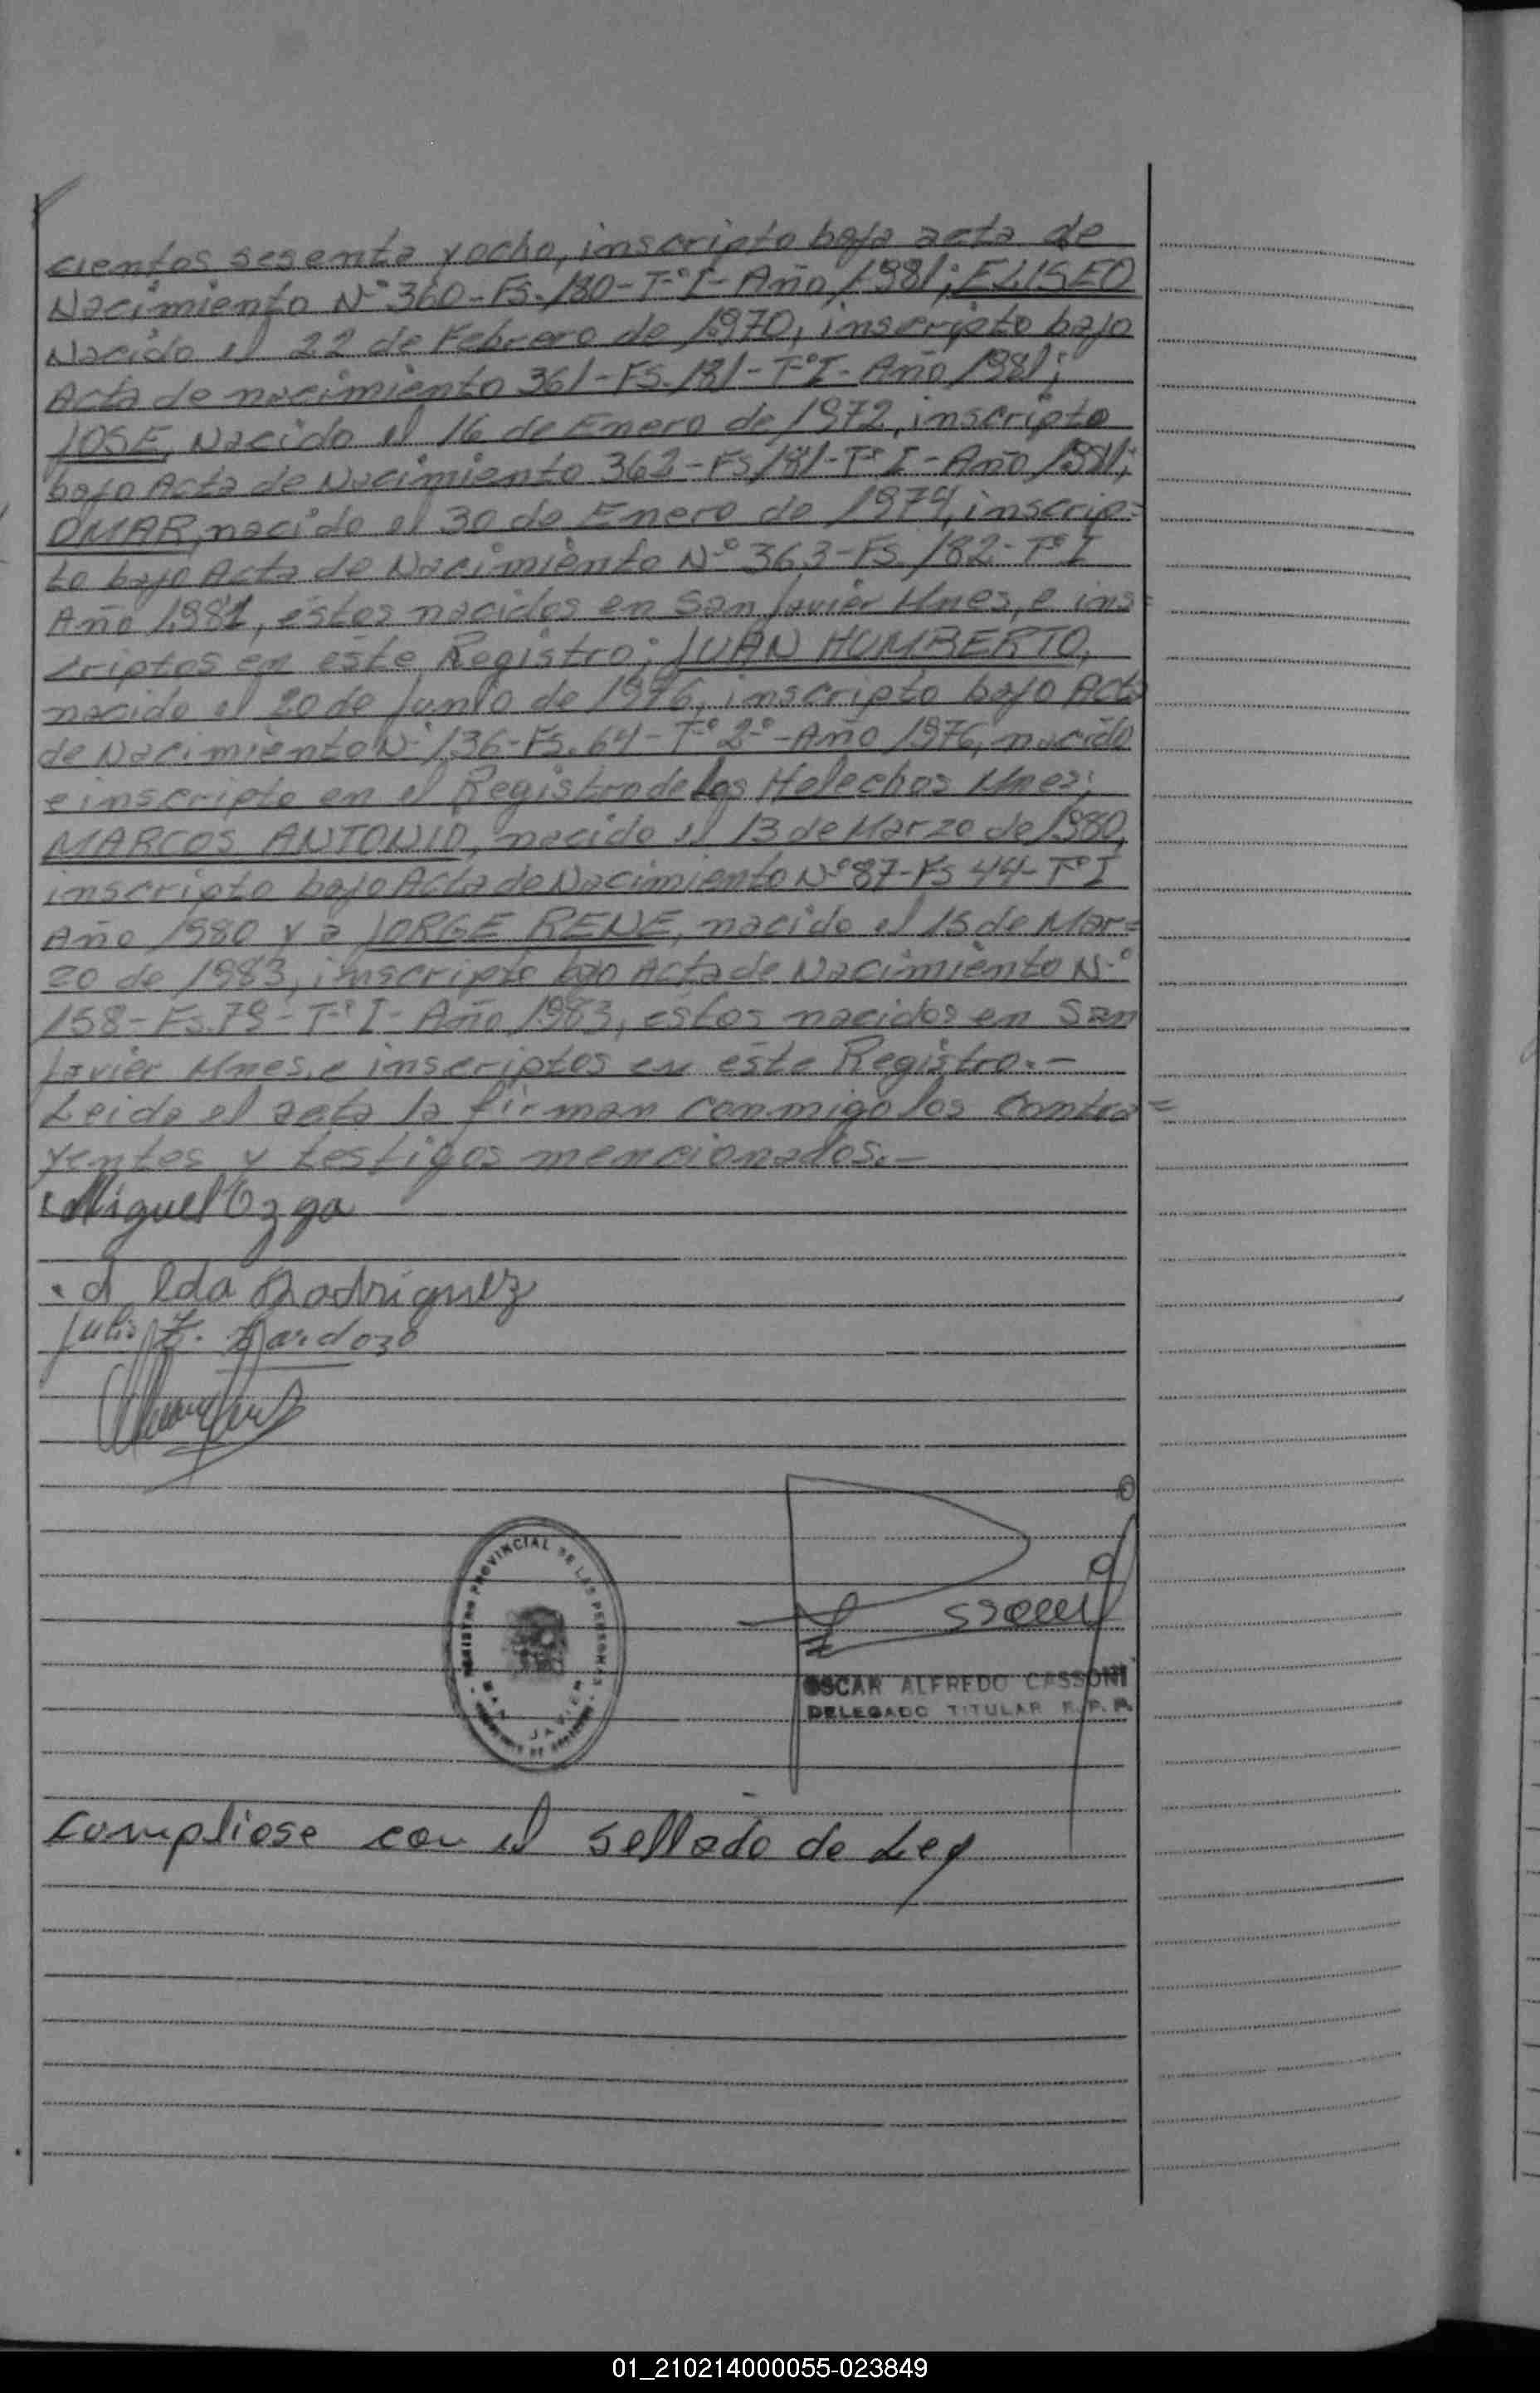 cientos sesenta y ocho, inscripto bajo acta de
Nacimiento N° 360-Fs. 180-T°I-Año 1981; ELISEO
Nacido el 22 de Febrero de 1970, inscripto bajo
Acta de nacimiento 361-FS. 181-T°I-Año 1981;
JOSE, Nacido el 16 de Enero de 1972, inscripto
bajo Acta de Nacimiento 362-FS 181-T°I-Año 1981;
OMAR, nacido el 30 de Enero de 1974, inscrip=
to bajo Acta de Nacimiento N° 363-FS. 182-T°I
Año 1981, éstos nacidos en San Javier Mnes, e ins=
criptos en este Registro; JUAN HUMBERTO,
nacido el 20 de Junio de 1976, inscripto bajo Acta
de Nacimiento N° 136-Fs. 64-T° 2°-Año 1976, nacido
e inscripto en el Registro de Los Helechos Mnes;
MARCOS ANTONIO, nacido el 13 de Marzo de 1980,
inscripto bajo Acta de Nacimiento N° 87-FS 44-T°I
Año 1980 y a JORGE RENE, nacido el 15 de Mar=
zo de 1983, inscripto bajo Acta de Nacimiento N°
158-Fs. 79-T°I-Año 1983, éstos nacidos en San
Javier Mnes. e inscriptos en éste Registro.-
Leida el acta la firman conmigo los contra=
yentes y testigos mencionados.-
Miguel Ozga
Elda Rodriguez
Julio Cardozo
REGISTRO PROVINCIAL DE LAS PERSONAS
SAN JAVIER
OSCAR ALFREDO CASSONI
DELEGADO TITULAR R. P. P.
Cumpliose con el sellado de Ley
01_210214000055-023849